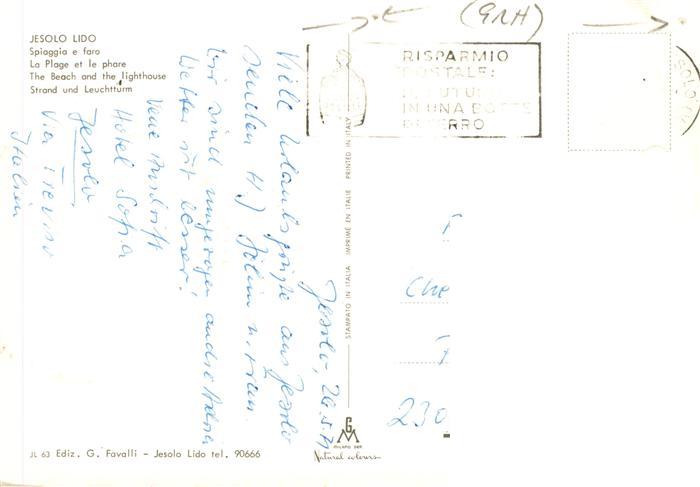 JESOLO LIDO
Spiaggia e faro
La Plage et le phare
The Beach and the lighthouse
Strand und Leuchtturm
(GRH)
RISPARMIO
POSTALE:
IN UNA BOTTE
DI FERRO
Jesolo, 26.5.
Viele Urlaubsgrüße aus Jesolo
senden H. J. u. Frau.
Wir sind umgezogen, andre
Wetter ist besser!
Neue Anschrift
Hotel Sofia
Jesolo
Via Treviso
Italien
Che
230
STAMPATO IN ITALIA IMPRIMÉ EN ITALIE PRINTED IN ITALY
GM
MILANO
Natural colours
JL 63 Ediz. G. Favalli - Jesolo Lido tel. 90666